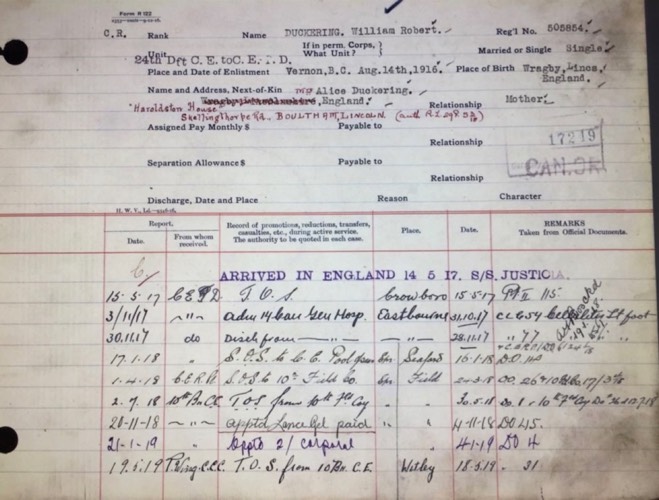 Form R 122
C.R. Rank Name DUCKERING, William Robert. Reg'l No. 505854.
Unit If in perm. Corps, What Unit? } Married or Single Single
24th Dft C.E. to C.E.T.D.
Place and Date of Enlistment Vernon, B.C. Aug. 14th, 1916. Place of Birth Wragby, Lincs, England.
Name and Address, Next-of-Kin Mrs Alice Duckering.
England. Relationship Mother.
"Haroldston House"
Skellingthorpe Rd., BOULTHAM, LINCOLN.
Assigned Pay Monthly $ Payable to
Relationship
17219
Separation Allowance $ Payable to
CAN.
Relationship
Discharge, Date and Place Reason Character
H. W. V., Ld.
Report. Record of promotions, reductions, transfers, casualties, etc., during active service. The authority to be quoted in each case. Place. Date. REMARKS Taken from Official Documents.
Date. From whom received.
ARRIVED IN ENGLAND 14 5 17. S/S. JUSTICIA.
15-5-17 C.E.T.D. T.O.S. Crowboro 15-5-17 Pt II 115
3/11/17 -"- adm 14 Can Gen Hosp. Eastbourne 31.10.17 CL 654 Cellulitis Lt foot
30.11.17 do Disch from -"- 28.11.17 " 77
17.1.18 " S.O.S. to C.E. Pool Spr Seaford 16-1-18 D.O. 14
1-4-18 C.E.R.D. S.O.S to 10th Field Co. Spr Field
2-7-18 T.O.S from 10th Fd Coy " 30.5.18
20-11-18 -"- apptd Lance Cpl paid " 4-11-18 DO 45.
21-1-19 " Appto 2/ corporal " 4-1-19 DO 4
19.5.19 T.O.S. from 10 Bn. C.E. Witley 18.5.19 " 31